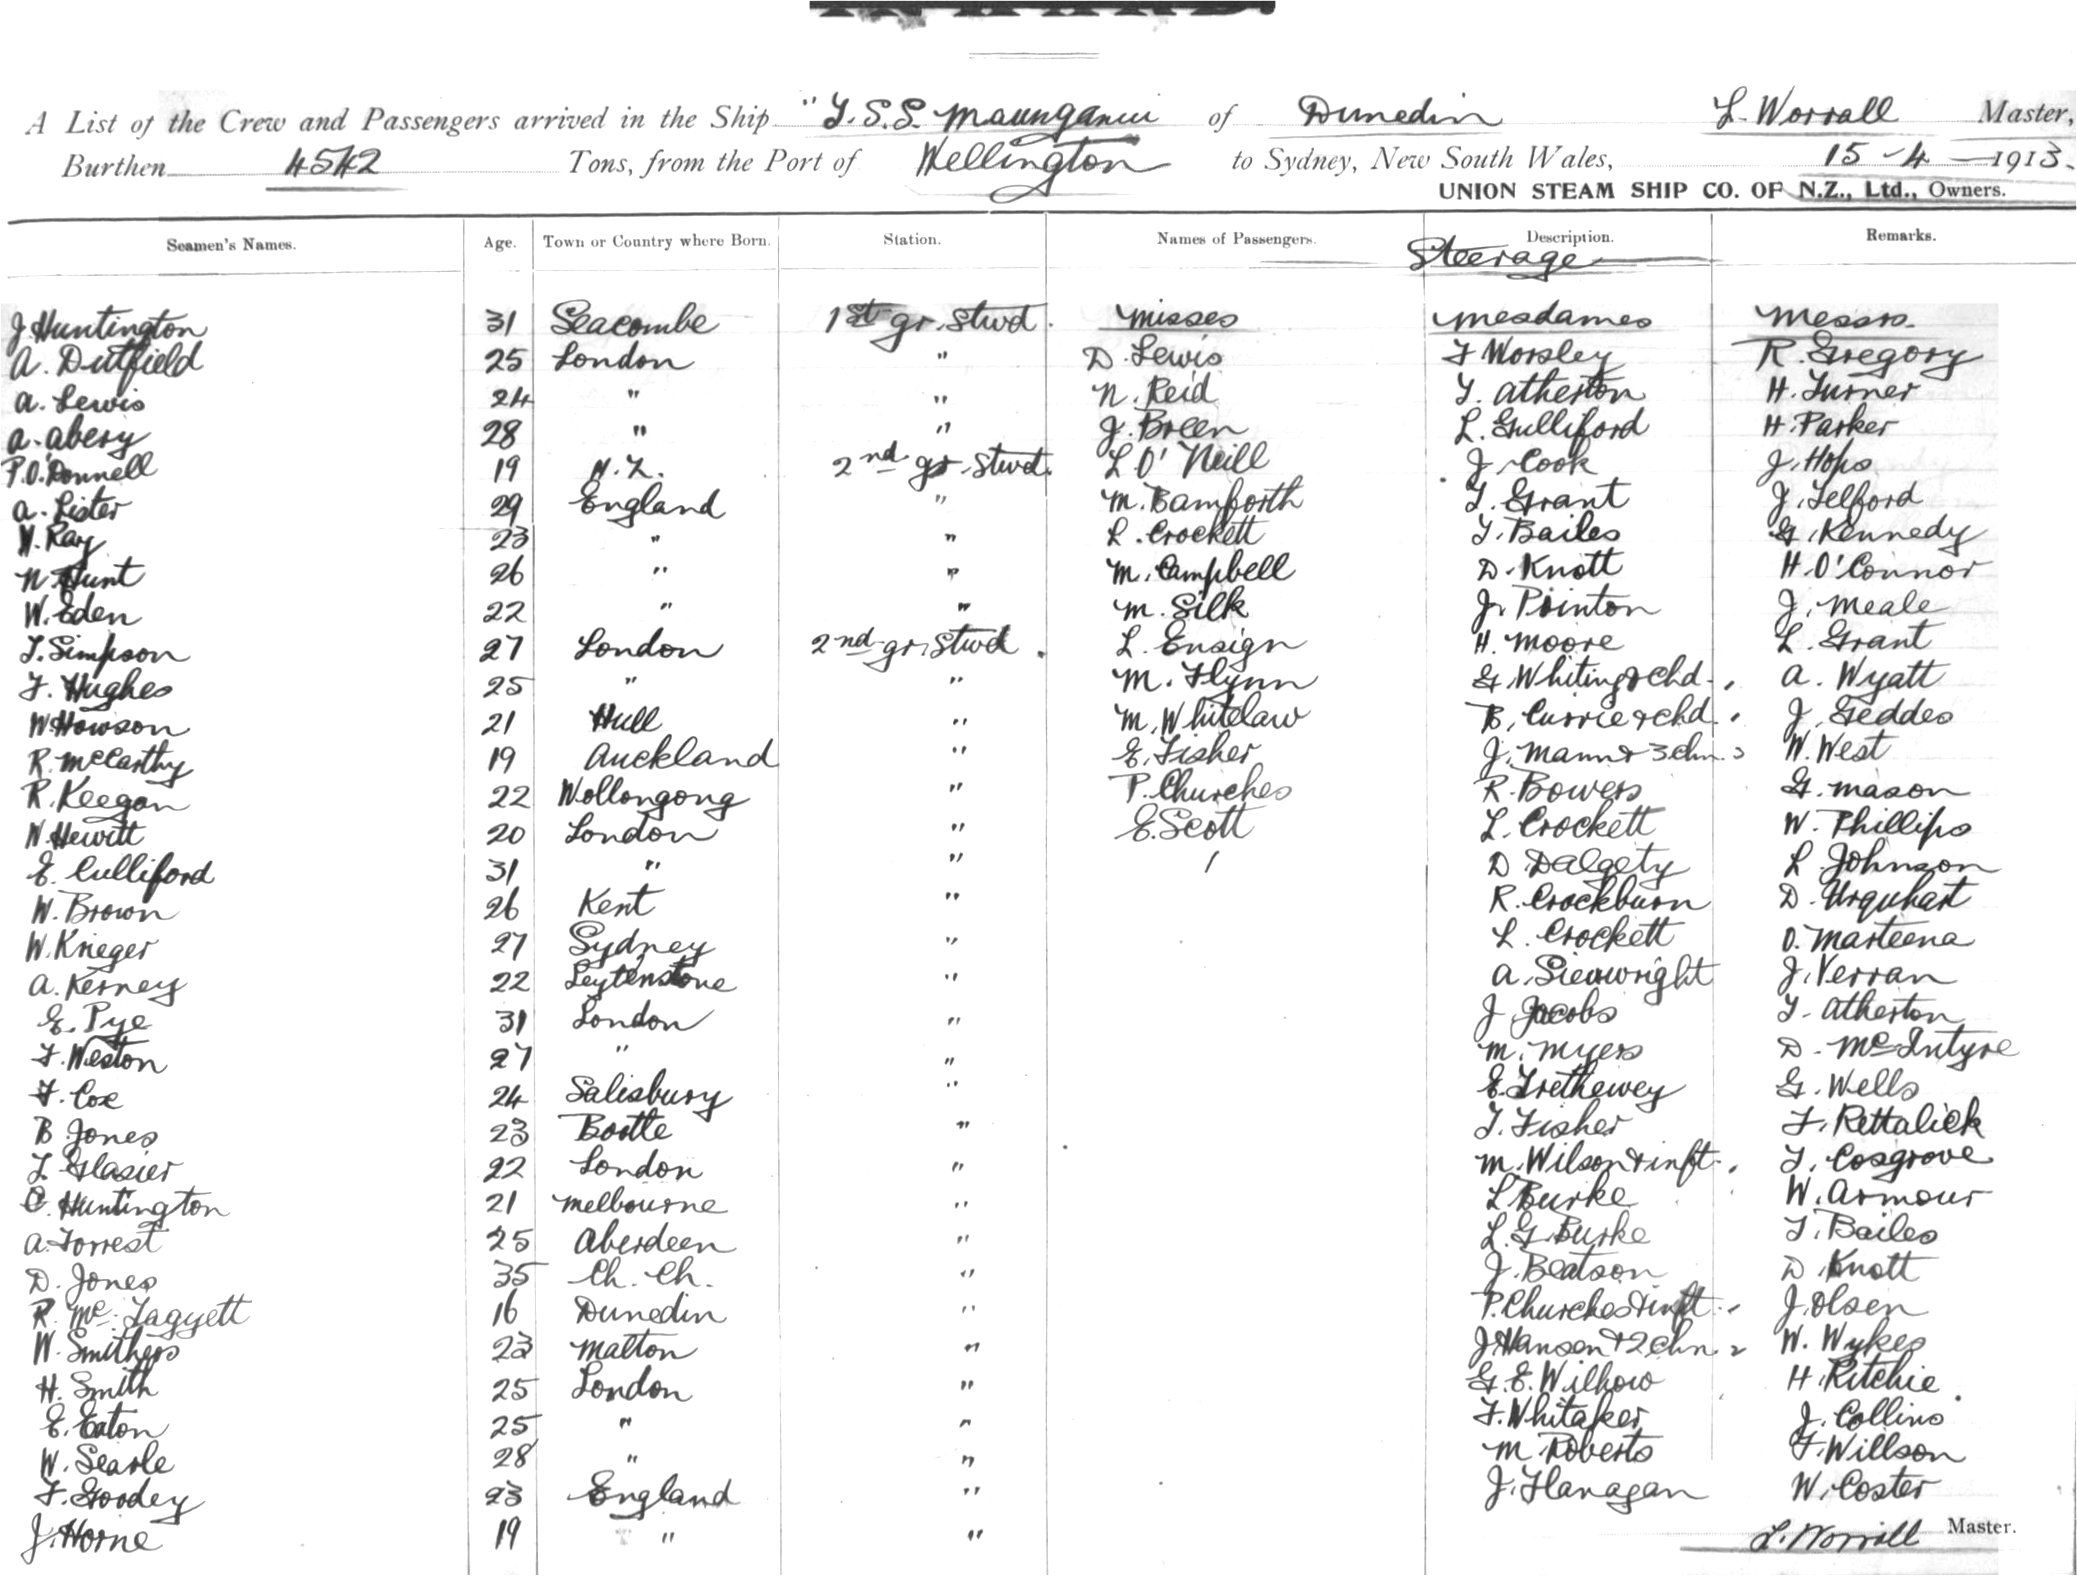 A List of the Crew and Passengers arrived in the Ship "T.S.S. Maunganui of Dunedin L. Worrall Master,
Burthen 4542 Tons, from the Port of Wellington to Sydney, New South Wales, 15-4-1913.
UNION STEAM SHIP CO. OF N.Z., Ltd., Owners.
Seamen's Names. Age. Town or Country where Born. Station. Names of Passengers. Description. Remarks.
Steerage
J. Huntington 31 Seacombe 1st gr. Stwd. Misses Mesdames Messrs.
A. Dutfield 25 London " D. Lewis F Worsley R. Gregory
A. Lewis 24 " " N. Reid T. Atherton H. Turner
A. Abery 28 " " J. Breen L. Gulliford H. Parker
P. O'Donnell 19 N.Z. 2nd gr. Stwd. L O'Neill J. Cook J. Hops
A. Lister 29 England " M. Bamforth T. Grant J. Telford
W. Ray 23 " " L. Crockett T. Bailes G. Kennedy
N. Hunt 26 " " M. Campbell D. Knott H. O'Connor
W. Eden 22 " " M. Silk J. Pointon J. Meale
T. Simpson 27 London 2nd gr. Stwd. L. Ensign H. Moore L. Grant
F. Hughes 25 " " M. Flynn G. Whiting & Chd. A. Wyatt
W. Howson 21 Hull " M. Whitelaw B. Currie & Chd. J. Geddes
R. McCarthy 19 Auckland " E. Fisher J. Mann & 3 Chn. W. West
R. Keegan 22 Wollongong " P. Churches R. Bowers G. Mason
W. Hewitt 20 London " E. Scott L. Crockett W. Phillips
E. Culliford 31 " " D Dalgety L Johnson
W. Brown 26 Kent " R. Crockburn D. Urquhart
W. Krieger 27 Sydney " L. Crockett O. Marteena
A. Kerney 22 Leytenstone " A. Sievwright J. Verran
E. Pye 31 London " J Jacobs T. Atherton
F. Weston 27 " " M. Myers D. McIntyre
F. Cox 24 Salisbury " E. Trethewey G. Wells
B Jones 23 Bootle " T. Fisher F. Rettalick
L. Glasier 22 London " M. Wilson & inft. T. Cosgrove
C. Huntington 21 Melbourne " L Burke W. Armour
A. Forrest 25 Aberdeen " L. G. Burke T. Bailes
D. Jones 35 Ch. Ch. " J. Beatson D Knott
R. Mc. Taggett 16 Dunedin " P. Churches & inft. J. Olsen
W. Smithers 23 Malton " J. Hansen & 2 Chn. W. Wykes
H. Smith 25 London " G. E. Wilkow H. Ritchie
E. Eaton 25 " " F. Whitaker J. Collins
W. Searle 28 " " M. Roberts F. Willson
F. Goodey 23 England " J. Flanagan W. Coster
J. Horne 19 " "
L. Worrall Master.